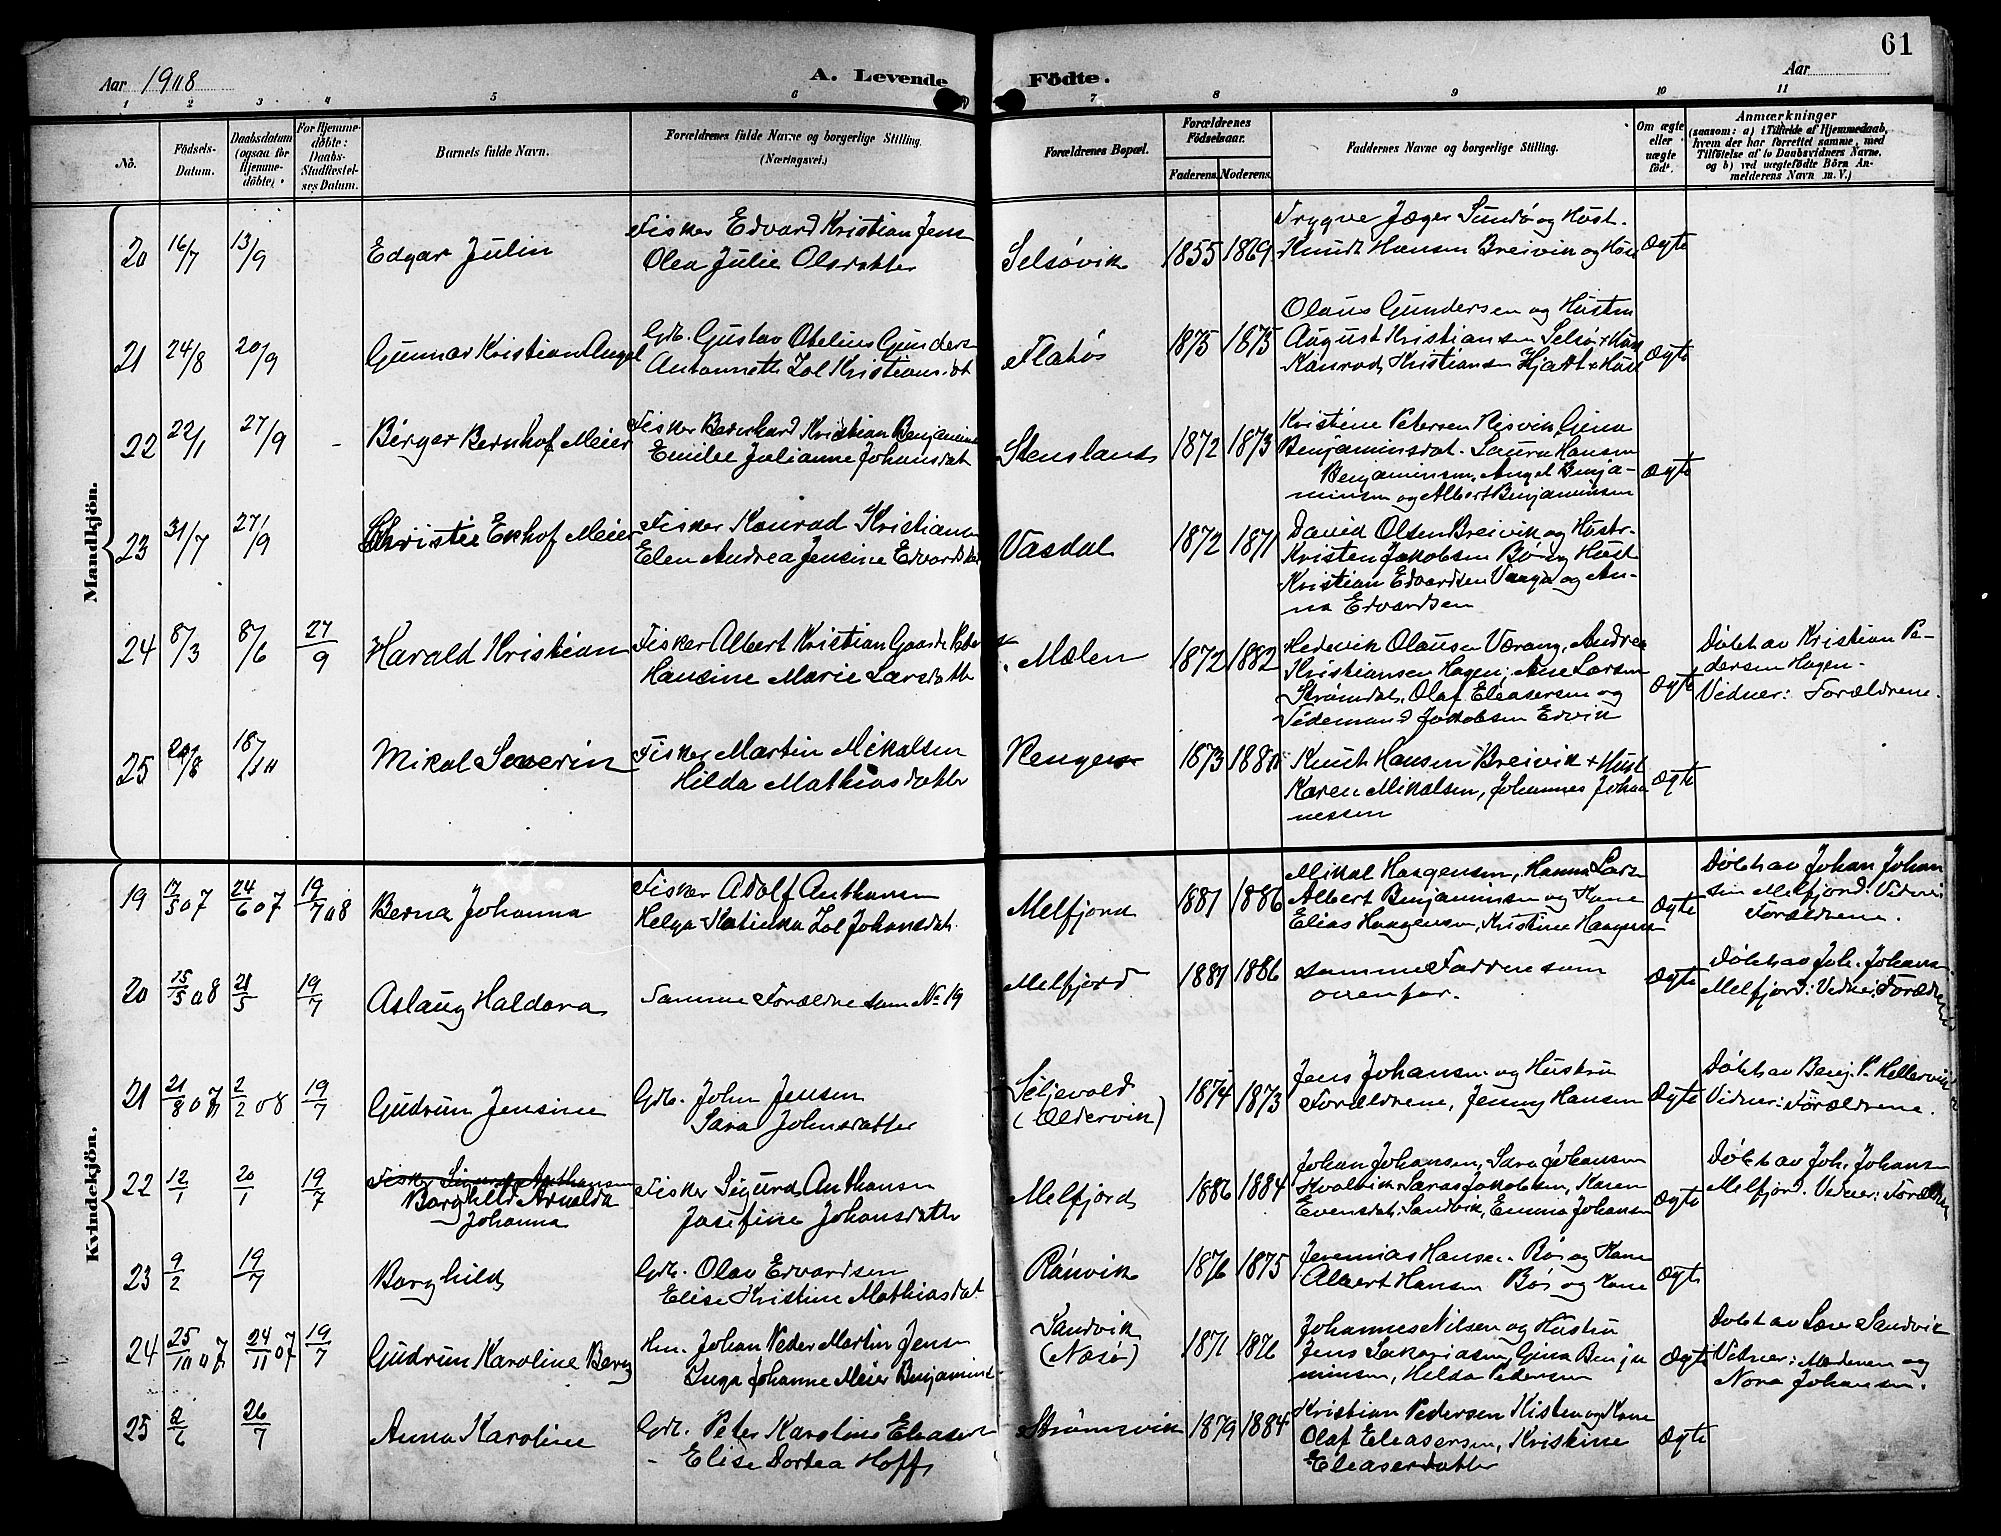 61
Aar 1908
A. Levende Födte.
Aar
1 2 3 4 5 6 7 8 9 10 11
No.
Födsels-Datum.
Daabsdatum (ogsaa for Hjemme-döbte).
For Hjemme-döbte: Daabs-Stadfæstel-ses Datum.
Barnets fulde Navn.
Forældrenes fulde Navne og borgerlige Stilling. (Næringsvei.)
Forældrenes Bopæl.
Forældrenes Födselsaar.
Faderens. Moderens.
Faddernes Navne og borgerlige Stilling.
Om ægte eller uægte födt.
Anmærkninger
(saasom: a) i Tilfælde af Hjemmedaab,
hvem der har forrettet samme, med
Tilföielse af to Daabsvidners Navne,
og b) ved uægtefödte Börn An-
melderens Navn m. V.)
Mandkjön.
20 16/7 13/9 Edgar Julin
Fisker Edvard Kristian Jens
Olea Julie Olsdatter
Selsövik 1855 1869
Trygve Jæger Sundö og Hust.
Knudt Hansen Breivik og Hus
Ægte
21 24/8 20/9 Gunnar Kristian Angel
Gdb. Gustav Otelius Gunders
Antonnette Zol Kristiansdat
Flatös 1875 1875
Olaus Gundersen og Hustru
August Kristiansen Selsö + Hus
Konrad Kristiansen Hjart + Hus
Ægte
22 22/1 27/9 - Birger Bernhof Meier
Fisker Bernhard Kristian Benjamins
Emilie Julianne Johansdat
Stensland 1872 1873
Kristine Petersen Risvik, Gina
Benjaminsdat. Laura Hansen
Benjaminsen, Angel Benja-
minsen og Albert Benjaminsen
Ægte
23 31/7 27/9 Christie Ekhof Meier
Fisker Konrad Kristians
Elen Andrea Jensine Edvardsdat
Vasdal 1872 1871
David Olsen Breivik og Hustr.
Kristen Jakobsen Bö og Hust
Kristian Edvardsen Vaaga og An-
na Edvardsen
24 8/3 8/6 27/9 Harald Kristian
Fisker Albert Kristian Gaarde Peter
Hansine Marie Larsdatter
Mælen 1872 1882
Hedevik Olausen Værang, Andrea
Kristiansen Hagen; Ane Larsen
Strömdal, Olaf Eleasersen og
Tidemand Jakobsen Edvik
Ægte
Döbt av Kristian Pe-
dersen Hagen.
Vidner: Forældrene.
25 20/8 18/10 Mikal Severin
Fisker Martin Mikalsen
Hilda Mathiasdatter
Rengen 1873 1880
Knut Hansen Breivik + Hust
Karen Mikalsen, Johannes Johan
nessen
Ægte
Kvindekjön.
19 17/5 07 24/6 07 19/7 08 Berna Johanna
Fisker Adolf Anthonsen
Helga Katinka Zol Johansdat.
Melfjord 1881 1886
Mikal Haagensen, Hanna Lars
Albert Benjaminsen og Kone
Elias Haagensen, Kristine Haagens
Ægte
Döbt av Johan Johan
sen Melfjord: Vidner
Forældrene.
20 15/5 08 21/5 19/7 Aslaug Haldora
Samme Forældre som No 19
Melfjord 1881 1886
Samme Faddere som
ovenfor.
Ægte
Döbt av Joh. Johans.
Melfjord: Vidner: Forældrene
21 21/8 07 2/2 08 19/7 Gudrun Jensine
Gdb. John Jensen
Sara Johnsdatter
Seljevold
(Ældervik)
1874 1873
Jens Johansen og Hustru
Forældrene, Jenny Hansen
Ægte
Döbt av Benj. P. Hellervik
Vidner: Forældrene.
22 12/1 20/1 19/7 Fisker Sigurd Anthonsen
Borghild Arnolda
Johanna
Fisker Sigurd Anthonsen
Josefine Johansdatter
Melfjord 1886 1884
Johan Johansen, Sara Johansen
Hvalvik Saras Jakobsen, Karen
Evensdat. Sandvik, Emma Johansen
Ægte
Döbt av Joh. Johansen
Melfjord. Vidner: Forældrene
23 9/2 19/7 Borghild
Gdb. Olav Edvardsen
Elise Kristine Mathiasdat
Rånvik 1876 1875
Jeremias Hansen Bö og Kone
Albert Hansen Bö og Kone
Ægte
24 25/10 07 24/11 07 19/7 Gudrun Karoline Berg
Hm. Johan Peder Martin Jens
Inga Johanne Meier Benjamind
Sandvik
(Nesö)
1871 1876
Johannes Nilsen og Hustru
Jens Sakariasen, Gina Benja
minsen, Hilda Pedersen
Ægte
Döbt av Lære Sandvik
Vidner: Moderen og
Nora Johansen.
25 2/6 26/7 Anna Karoline
Gdb. Peter Karolius Eleasers
- Elise Dortea Hoff
Strömsvik 1879 1884
Kristian Pedersen Kisten og Kone
Olaf Eleasersen, Kristine
Eleaserdatter
Ægte